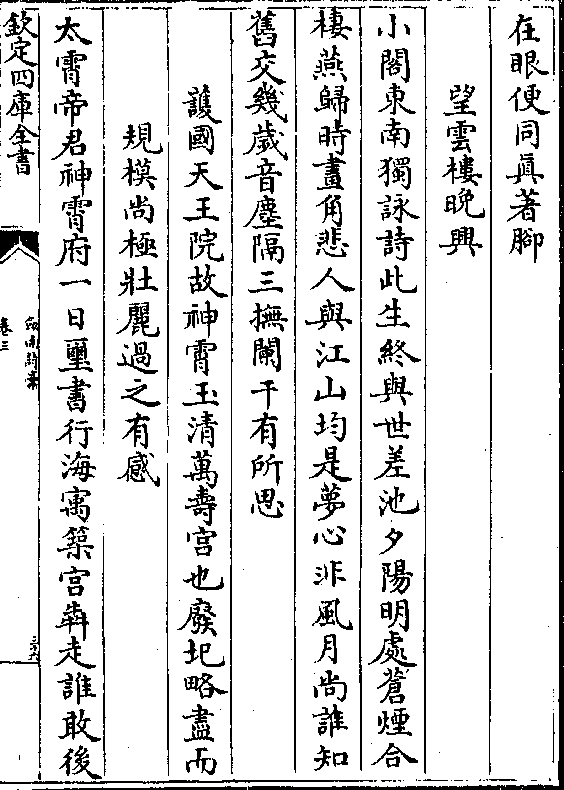 在眼便同真著腳
望雲樓晚興
小閣東南獨詠詩此生終與世差池夕陽明處蒼煙合
棲燕歸時畫角悲人與江山均是夢心非風月尚誰知
舊交幾歲音塵隔三撫闌干有所思
護國天王院故神霄玉清萬壽宮也廢圯略盡而
規模尚極壯麗過之有感
太霄帝君神霄府一日璽書行海寓築宮犇走誰敢後
欽定四庫全書
劍南詩稾
卷三
三六